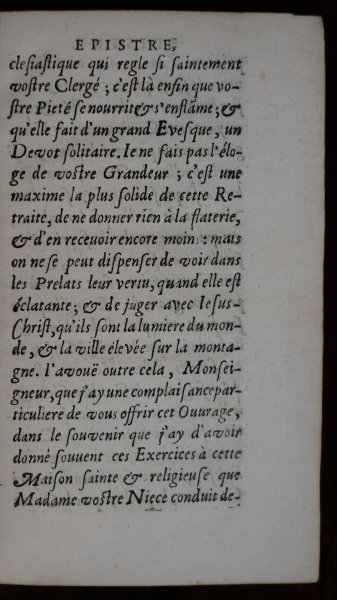 EPISTRE,
clesiastique qui regle si saintement
vostre Clergé ; c'est là enfin que vo-
stre Pieté se nourrit & s'enflâme ; &
qu'elle fait d'un grand Evesque, un
Devot solitaire. Ie ne fais pas l'élo-
ge de vostre Grandeur ; c'est une
maxime la plus solide de cette Re-
traite, de ne donner rien à la flaterie,
& d'en recevoir encore moins : mais
on ne se peut dispenser de voir dans
les Prelats leur vertu, quand elle est
éclatante ; & de juger avec Iesus-
Christ, qu'ils sont la lumiere du mon-
de, & la ville élevée sur la monta-
gne. I'avouë outre cela, Monsei-
gneur, que j'ay une complaisance par-
ticuliere de vous offrir cet Ouvrage,
dans le souvenir que j'ay d'avoir
donné souvent ces Exercices à cette
Maison sainte & religieuse que
Madame vostre Niece conduit de-